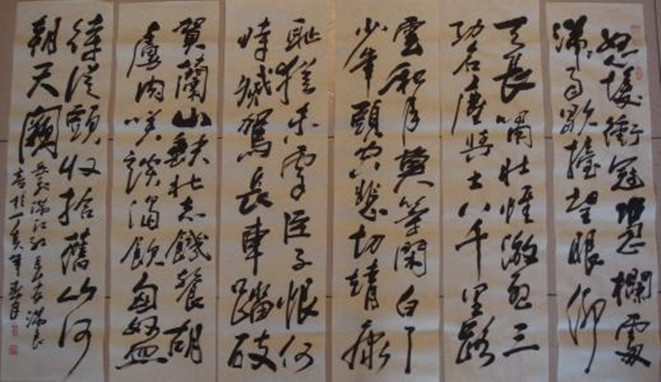 怒髮衝冠憑欄處
瀟瀟雨歇擡望眼仰
天長嘯壯懷激烈三
功名塵與土八千里路
雲和月莫等閒白了
少年頭空悲切靖康
恥猶未雪臣子恨何
時滅駕長車踏破
賀蘭山缺壯志饑餐胡
虜肉笑談渴飲匈奴血
待從頭收拾舊山河
朝天闕
岳飛滿江紅
丁亥年